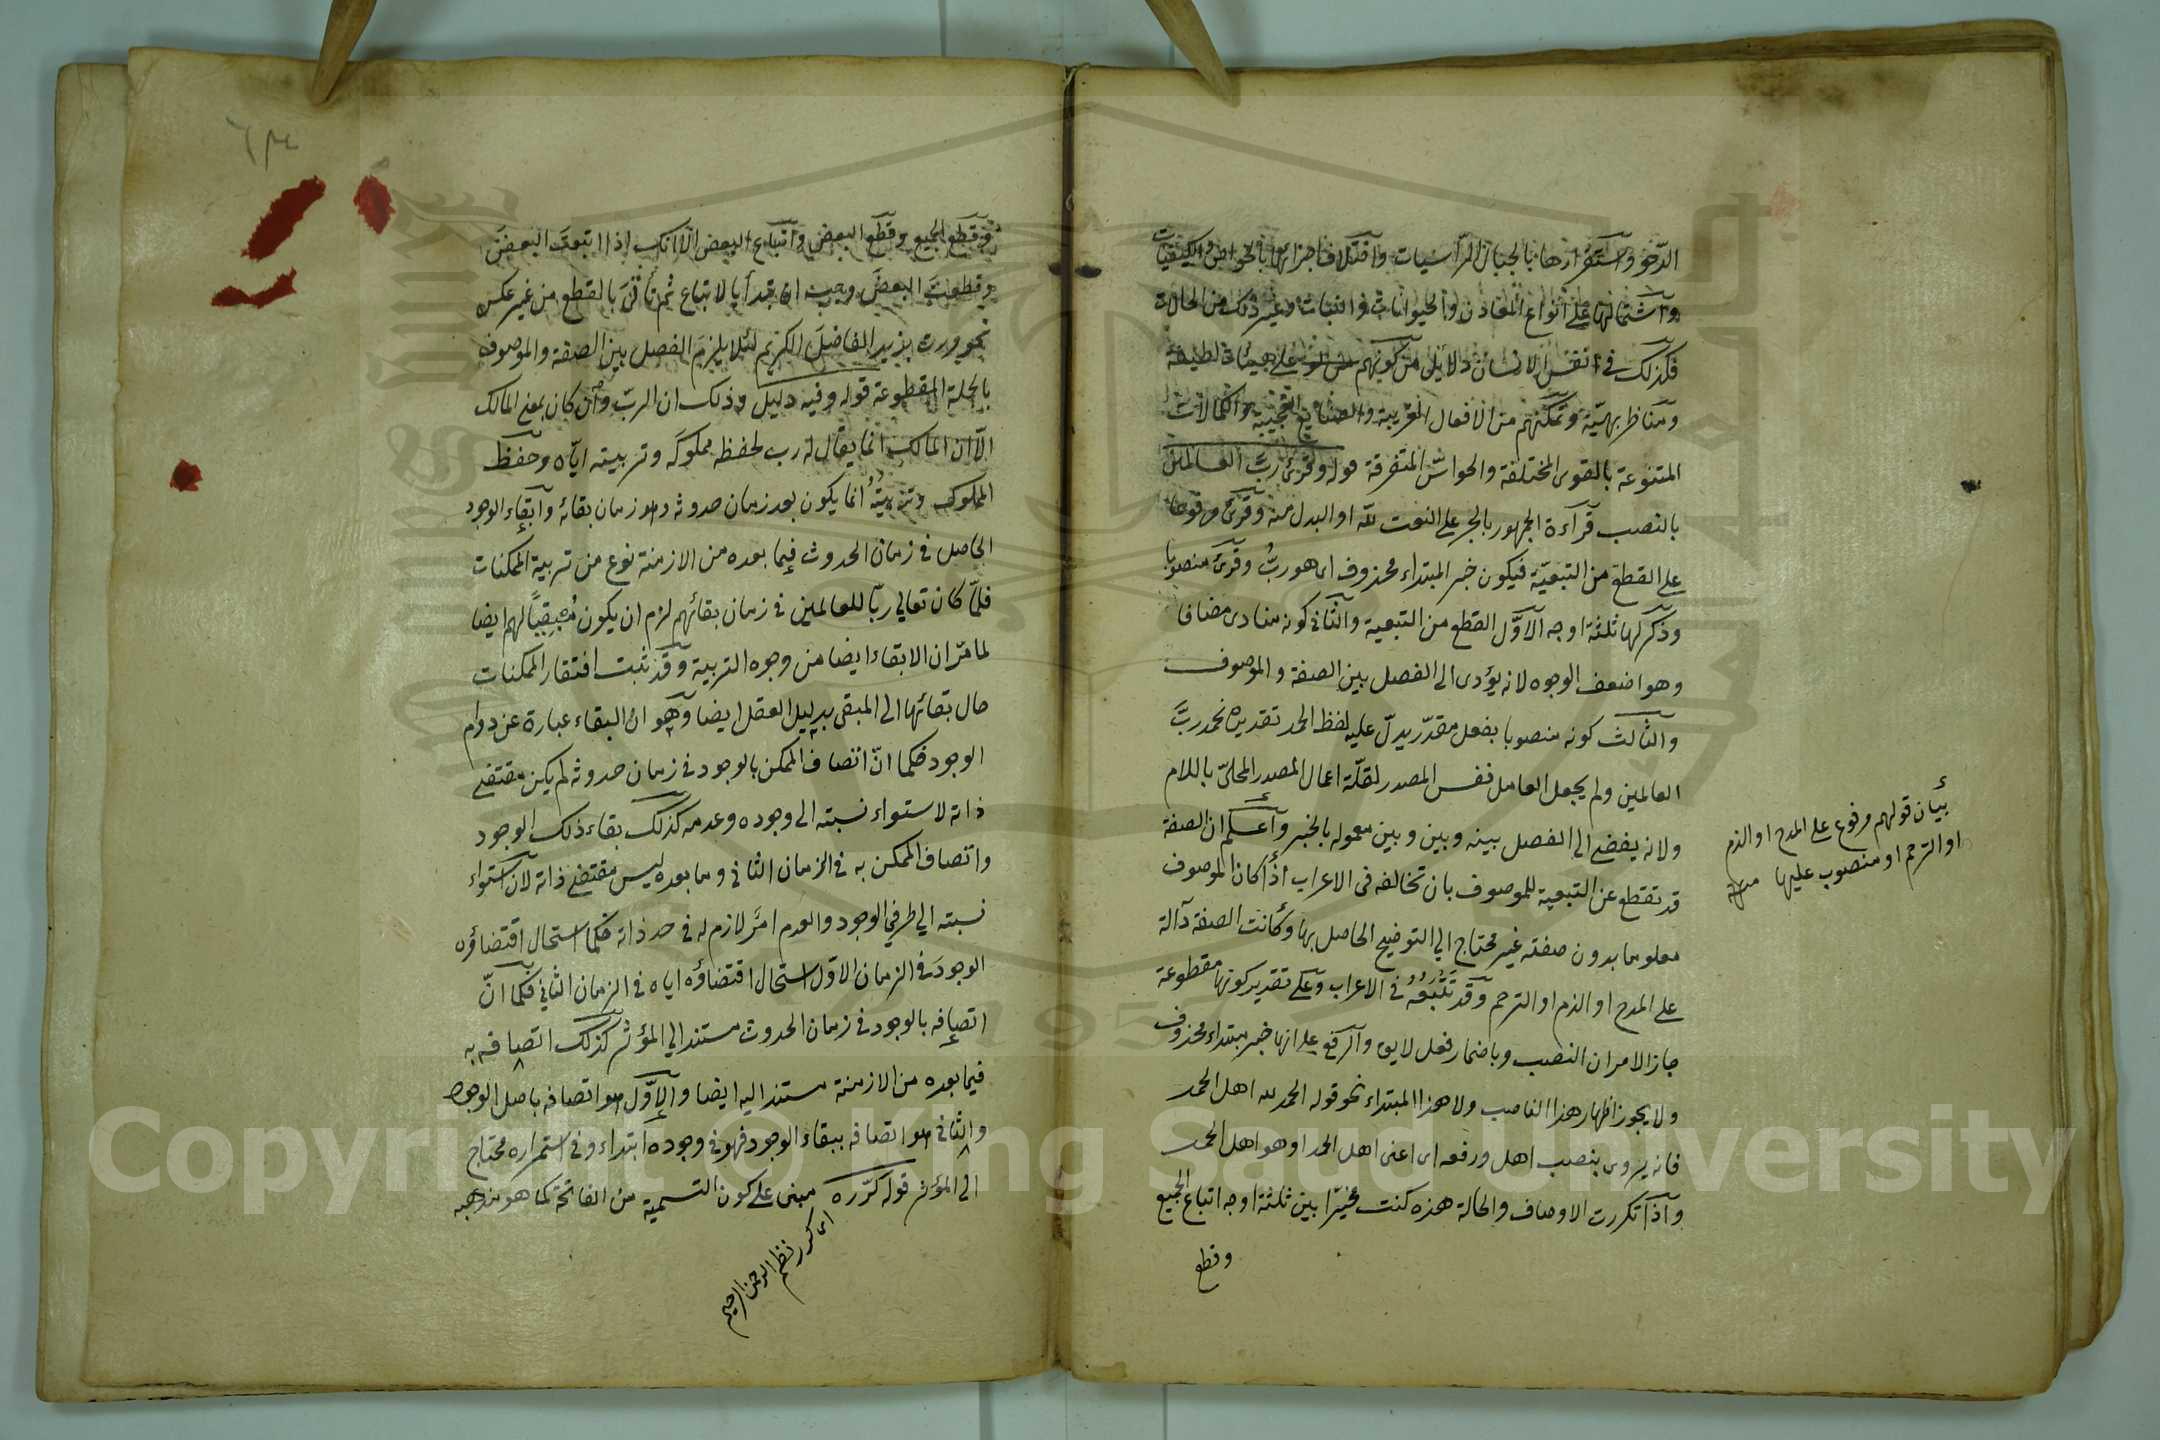 الدّحو واستقرارها بالجبال الرّاسيات واختلاف اجزائها فى الخواص والكيفيّات
واشتمالها على انواع المعادن والحيوانات والنبات وغير ذلك من الحالات
فكذلك فى انفس الانسان دلايل من كونهم على هيئات لطيفة
ومناظر بهيّة وتمكّنهم من الافعال الغريبة والصنايع العجيبة والكمالات
المتنوعة بالقوى المختلفة والحواسّ المتفرقة قوله وقرئ ربَّ العالمين
بالنصب قرآءة الجمهور بالجر على النعت لله او البدل منه وقرئ مرفوعا
على القطع من التبعيّة فيكون خبر المبتداء محذوف اى هو ربُّ وقرئ منصوبا
وذكر لها ثلثة اوجه الاوّل القطع من التبعية والثانى كونه منادى مضافا
وهو اضعف الوجوه لانه يؤدى الى الفصل بين الصفة والموصوف
والثالث كونه منصوبا بفعل مقدّر يدلّ عليه لفظ الحمد تقديره نحمد ربَّ
العالمين ولم يجعل العامل نفس المصدر لقلّة اعمال المصدر المحلىّ باللام
ولانه يفضى الى الفصل بينه وبين وبين معموله بالخبر واعلم ان الصفة
قد تقطع عن التبعية للموصوف بان تخالفه فى الاعراب اذا كان الموصوف
معلوما بدون صفته غير محتاج الى التوضيح الحاصل بها وكانت الصفة دآلة
على المدح او الذم او الترحم وقد تَتْبَعُهُ فى الاعراب وعلى تقدير كونها مقطوعة
جاز الامران النصب وباضمار فعل لايق والرفع على انها خبر مبتداء محذوف
ولا يجوز اظهار هذا الناصب ولا هذا المبتداء نحو قوله الحمد لله اهل الحمد
فانه يروى بنصب اهل ورفعه اى اعنى اهل الحمد او هو اهل الحمد
واذا تكررت الاوصاف والحالة هذه كنت مخيّرا بين ثلثة اوجه اتباع الجميع
وقطع
بيان قولهم مرفوع على المدح او الذم
او الترحم او منصوب عليها منه
وقطع الجميع وقطع البعض واتباع البعض الا انك اذا اتبعت البعض
وقطعت البعض وجب ان تبدأ بالاتباع ثم تأتى بالقطع من غير عكس
نحو مررت بزيد الفاضلَ الكريم لئلا يلزم الفصل بين الصفة والموصوف
بالجملة المقطوعة قوله وفيه دليل وذلك ان الربّ وان كان بمعنى المالك
الّا ان المالك انما يقال له رب لحفظه مملوكه وتربيته ايّاه وحفظ
المملوك وتربيتُهُ انما يكون بعد زمان حدوثه وهو زمان بقائه وابقاء الوجود
الحاصل فى زمان الحدوث فيما بعده من الازمنة نوع من تربية الممكنات
فلمّا كان تعالى ربّا للعالمين فى زمان بقائهم لزم ان يكون مُبقيًا لهم ايضا
لما مرّ ان الابقاء ايضا من وجوه التربية وقد ثبت افتقار الممكنات
حال بقائها الى المبقى بدليل العقل ايضا وهو ان البقاء عبارة عن دوام
الوجود فكما انّ اتصاف الممكن بالوجود فى زمان حدوثه لم يكن مقتضى
ذاته لاستواء نسبته الى وجوده وعدمه كذلك بقاء ذلك الوجود
واتصاف الممكن به فى الزمان الثانى وما بعده ليس مقتضى ذاته لان استواء
نسبته الى طرفى الوجود والعدم امرٌ لازم له فى حد ذاته فكما استحال اقتضاؤه
الوجودَ فى الزمان الاوّل استحال اقتضاؤه اياه فى الزمان الثانى فكما انّ
اتصافه بالوجود فى زمان الحدوث مستند الى المؤثر كذلك اتصافه به
فيما بعده من الازمنة مستند اليه ايضا والاوّل هو اتصافه باصل الوجود
والثانى هو اتصافه ببقاء الوجود فهو فى وجوده ابتداء وفى استمراره محتاج
الى المؤثر قوله كرّره مبنى على كون التسمية من الفاتحة كما هو مذهبه
اى كرر نظم الرحمن الرحيم
Copyright © King Saud University
1957